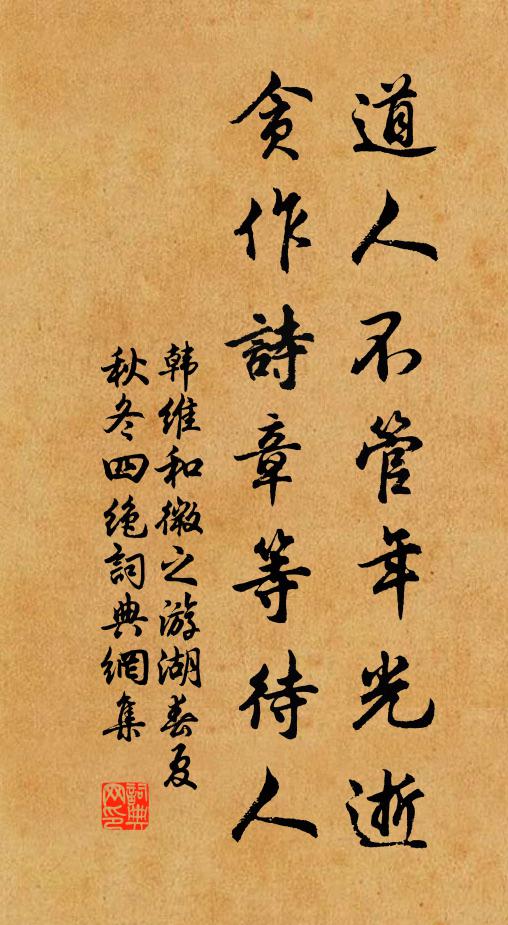 道人不管年光逝
贪作詩章等待人
韩维和微之游湖春夏
秋冬四绝詞典網集
詞典
网印